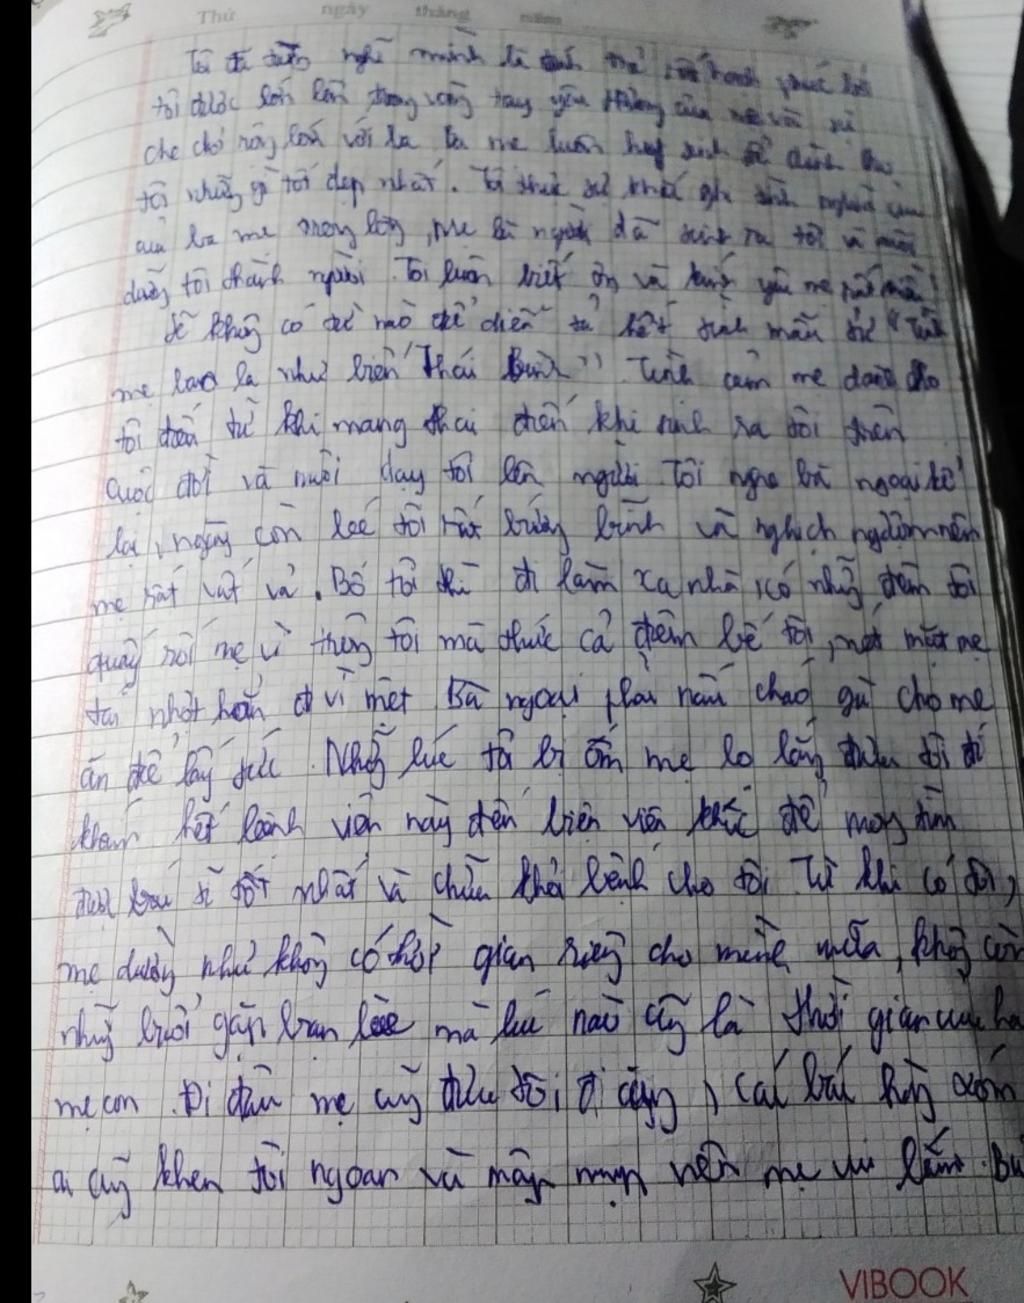 Thứ ngày tháng năm
Tôi đã từng nghĩ mình là mẻ hạnh phúc bởi
tôi được lớn lên trong vòng tay yêu thương của mẹ với sự
che chở rộng lớn với ba mẹ luôn hy sinh để dành cho
tôi những gì tốt đẹp nhất. Tôi thực sự khắc ghi
của ba mẹ trong lòng, mẹ là người đã sinh ra tôi và nuôi
dưỡng tôi thành người. Tôi luôn biết ơn và kính yêu mẹ rất nhiều
để không có từ nào để diễn tả hết tình mẫu tử "Tình
mẹ lao la như biển Thái Bình" Tình cảm mẹ dành cho
tôi đến từ khi mang thai đến khi sinh ra tôi trên
cuộc đời và nuôi dạy tôi lên người Tôi nghe bà ngoại kể
lại, ngày còn bé tôi rất bướng bỉnh và nghịch ngợm nên
mẹ rất vất vả. Bố tôi thì đi làm xa nhà, có những đêm tôi
quấy rối mẹ vì thương tôi mà thức cả đêm bế tôi, nét mặt mẹ
tái nhợt hẳn đi vì mệt Bà ngoại phải nấu cháo gà cho mẹ
ăn để lấy sức. Những lúc tôi bị ốm mẹ lo lắng đưa tôi đi
khám hết bệnh viện này đến viện khác để mong tìm
được bác sĩ tốt nhất và chữa khỏi bệnh cho tôi Từ khi có tôi,
mẹ dường như không có thời gian riêng cho mình nữa, không còn
những buổi gặp bạn bè mà lúc nào cũng là thời gian của hai
mẹ con. Đi đâu mẹ cũng đưa tôi đi cùng, các bác hàng xóm
ai cũng khen tôi ngoan và mập mạp nên mẹ vui lắm.
VIBOOK